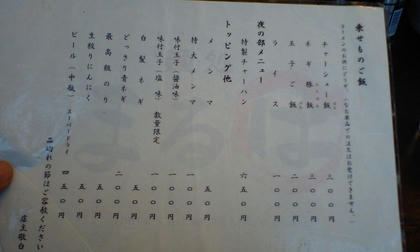 乗せものご飯
(ラーメンのお供にどうぞ。なお単品での注文はお受けできません。)
チャーシュー飯 三〇〇円
ネギ豚飯 三〇〇円
玉子ご飯 二〇〇円
ライス 一〇〇円
夜の部メニュー
特製チャーハン 六五〇円
トッピング他
メンマ 五〇円
特大メンマ 一〇〇円
味付玉子(醤油味) 一〇〇円
味付玉子(塩味) 数量限定 一〇〇円
白髪ネギ 一〇〇円
どっさり青ネギ 一〇〇円
最高級のり 二〇〇円
生絞りにんにく 五〇円
ビール(中瓶) スーパードライ 四五〇円
品切れの節はご容赦ください
店主敬白